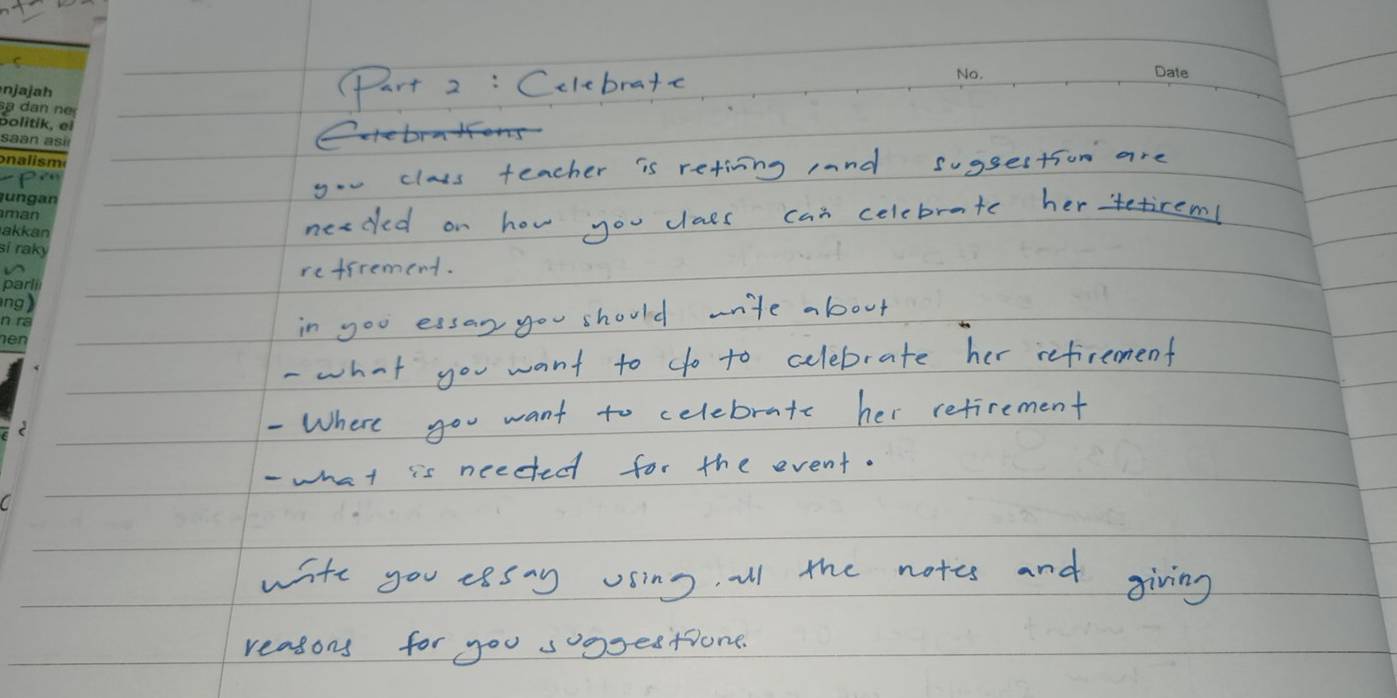 njajah
sa dan ne
politik, el
saan asi
onalism
gungan
aman
akkan
si raky
parli
ng)
n ra
nen
No.
Date
Part 2 : Celebrate
Celebrations
you class teacher is retiring, and suggestion are
needed on how you class can celebrate her retirem
retirement.
in you essay you should write about
- what you want to do to celebrate her retirement
- Where you want to celebrate her retirement
- what is needed for the event.
write you essay using all the notes and giving
reasons for you suggestions.